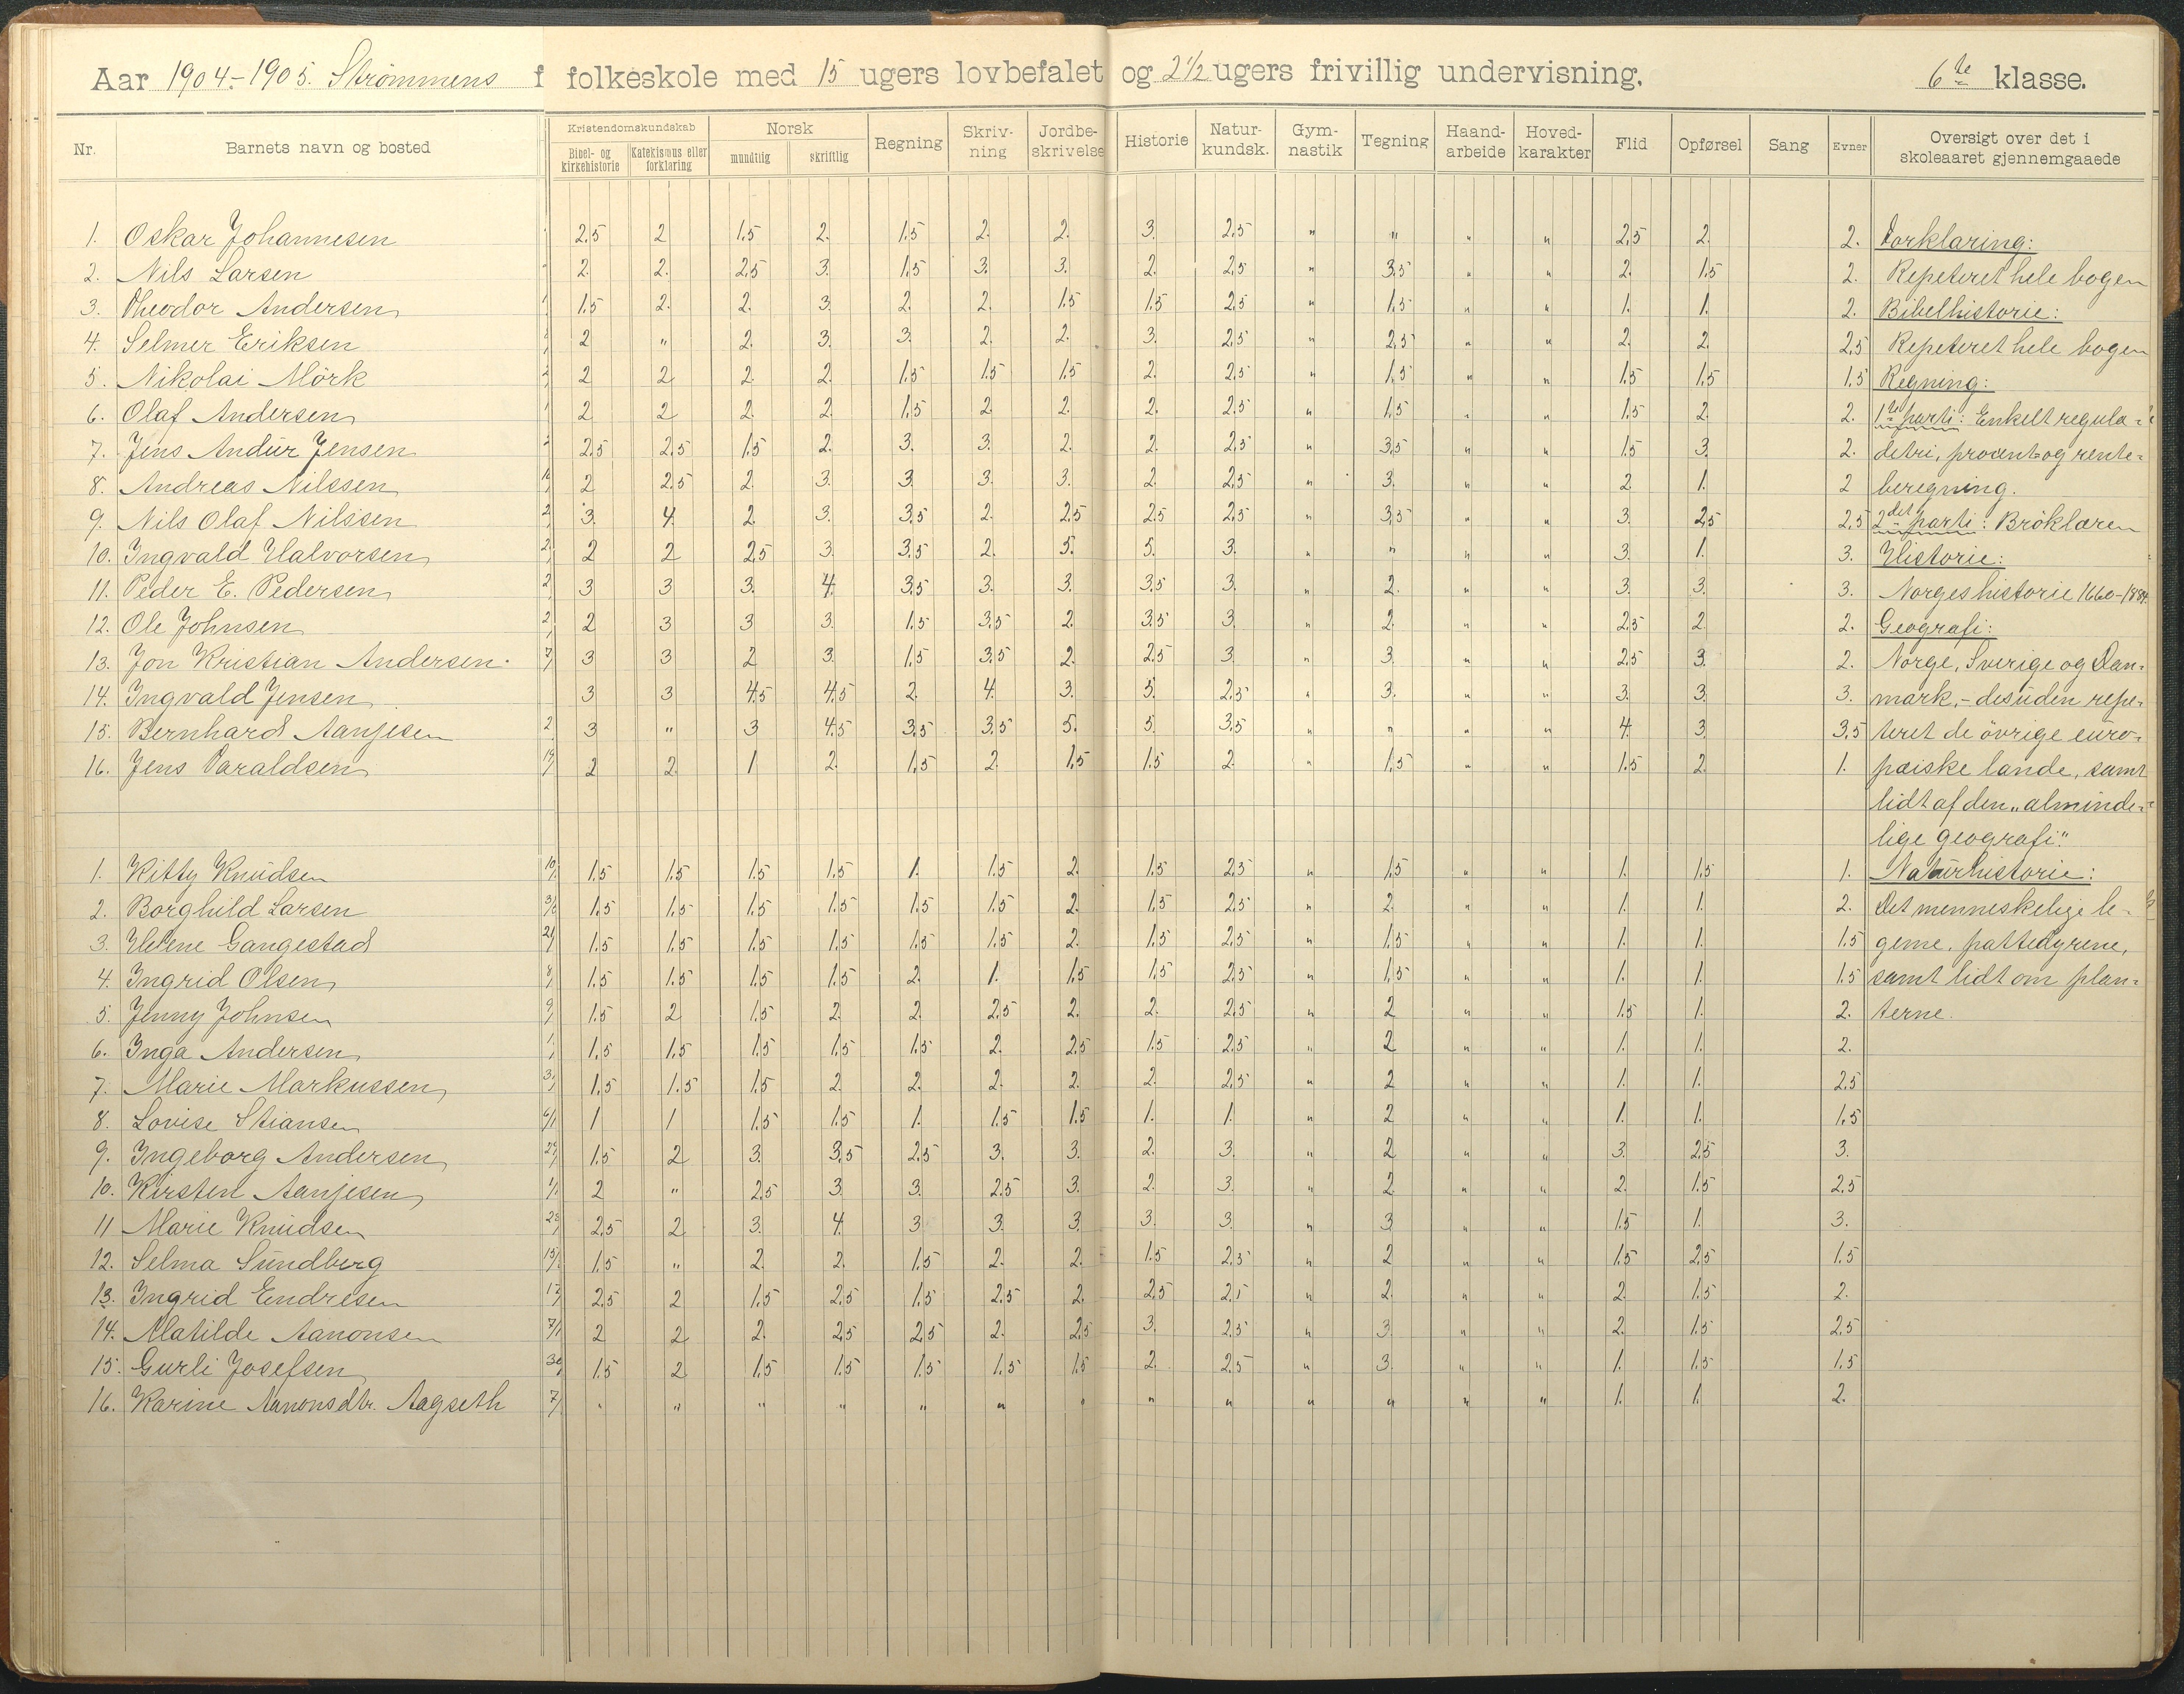 Aar 1904-1905. Strömmens folkeskole med 15 ugers lovbefalet og 2 1/2 ugers frivillig undervisning. 6te klasse.
Nr. Barnets navn og bosted Kristendomskundskab Bibel- og kirkehistorie Katekismus eller forklaring Norsk mundtlig skriftlig Regning Skrivning Jordbeskrivelse Historie Naturkundsk. Gymnastik Tegning Haandarbeide Hovedkarakter Flid Opførsel Sang Evner Oversigt over det i skoleaaret gjennemgaaede
1. Oskar Johannesen 2,5 2 1,5 2. 1,5 2. 2. 3. 2,5 " " " " 2,5 2. 2. Forklaring:
2. Nils Larsen 2. 2. 2,5 3. 1,5 3. 3. 2. 2,5 " 3,5 " " 2. 1,5 2. Repeteret hele bogen
3. Theodor Andersen 1,5 2. 2. 3. 2. 2. 1,5 1,5 2,5 " 1,5 " " 1. 1. 2. Bibelhistorie:
4. Selmer Eriksen 2 " 2. 3. 3. 2. 2. 3. 2,5 " 2,5 " " 2. 2. 2,5 Repeteret hele bogen
5. Nikolai Mörk 2 2 2. 2. 1,5 1,5 1,5 2. 2,5 " 1,5 " " 1,5 1,5 1,5 Regning:
6. Olaf Andersen 2 2 2 2. 1,5 2. 2. 2. 2,5 " 1,5 " " 1,5 2. 2. 1ste parti: Enkelt regula-
7. Jens Andür Jensen 2,5 2,5 1,5 2. 3. 3. 2. 2. 2,5 " 3,5 " " 1,5 3. 2. detri, procent og rente-
8. Andreas Nilssen 2 2,5 2 3. 3. 3. 3. 2. 2,5 " 3. " " 2 1. 2 beregning.
9. Nils Olaf Nilssen 3. 4. 2. 3. 3,5 2. 2,5 2,5 2,5 " 3,5 " " 3. 2,5 2,5 2det parti: Bröklæren
10. Ingvald Halvorsen 2 2 2,5 3. 3,5 2. 5. 5. 3. " " " " 3. 1. 3. Historie:
11. Peder E. Pedersen 3 3 3. 4. 3,5 3. 3. 3,5 3. " 2. " " 3. 3. 3. Norgeshistorie 1660-1884.
12. Ole Johnsen 2 3 3 3. 1,5 3,5 2. 3,5 3. " 2. " " 2,5 2. 2. Geografi:
13. Jon Kristian Andersen. 3 3 2 3. 1,5 3,5 2. 2,5 3. " 3. " " 2,5 3. 2. Norge, Sverige og Dan-
14. Ingvald Jensen 3 3 4,5 4,5 2. 4. 3. 5. 2,5 " 3. " " 3. 3. 3. mark, - desüden repe-
15. Bernhard Aanjesen 3 " 3 4,5 3,5 3,5 5. 5. 3,5 " " " " 4. 3. 3,5 teret de övrige euro-
16. Jens Taraldsen 2 2. 1 2. 1,5 2. 1,5 1,5 2. " 1,5 " " 1,5 2. 1. pæiske lande, samt
lidt af den „alminde-
lige geografi".
1. Kitty Knüdsen 1,5 1,5 1,5 1,5 1. 1,5 2. 1,5 2,5 " 1,5 " " 1. 1,5 1. Natürhistorie:
2. Borghild Larsen 1,5 1,5 1,5 1,5 1,5 1,5 2. 1,5 2,5 " 2. " " 1. 1. 2. Det menneskelige le-
3. Helene Gangestad 1,5 1,5 1,5 1,5 1,5 1,5 2. 1,5 2,5 " 1,5 " " 1. 1. 1,5 geme, pattedyrene,
4. Ingrid Olsen 1,5 1,5 1,5 1,5 2. 1. 1,5 1,5 2,5 " 1,5 " " 1. 1. 1,5 samt lidt om plan-
5. Jenny Johnsen 1,5 2 1,5 2. 2. 2,5 2. 2. 2,5 " 2 " " 1,5 1. 2. terne.
6. Inga Andersen 1,5 1,5 1,5 1,5 1,5 2. 2,5 1,5 2,5 " 2 " " 1. 1. 2.
7. Marie Markussen 1,5 1,5 1,5 2. 2. 2. 2. 2. 2,5 " 2 " " 1. 1. 2,5
8. Lovise Stiansen 1 1 1,5 1,5 1. 1,5 1,5 1. 1. " 2 " " 1. 1. 1,5
9. Ingeborg Andersen 1,5 2 3. 3,5 2,5 3. 3. 2. 3. " 2 " " 3. 2,5 3.
10. Kirsten Aanjesen 2 " 2,5 3. 3. 2,5 3. 2. 3. " 2. " " 2. 1,5 2,5
11 Marie Knüdsen 2,5 2 3. 4. 3 3. 3. 3. 3. " 3 " " 1,5 1. 3.
12. Selma Sündberg 1,5 " 2. 2. 1,5 2. 2. 1,5 2,5 " 2 " " 1,5 2,5 1,5
13. Ingrid Endresen 2,5 2 1,5 2,5 1,5 2,5 2. 2,5 2,5 " 2. " " 2. 1,5 2.
14. Matilde Aanonsen 2 2 2. 2,5 2,5 2. 2,5 3. 2,5 " 3. " " 2. 1,5 2,5
15. Gurli Josefsen 1,5 2 1,5 1,5 1,5 1,5 1,5 2. 2,5 " 3. " " 1. 1,5 1,5
16. Karine Aanonsdtr. Aagseth " " " " " " " " " " " " " 1. 1. 2.